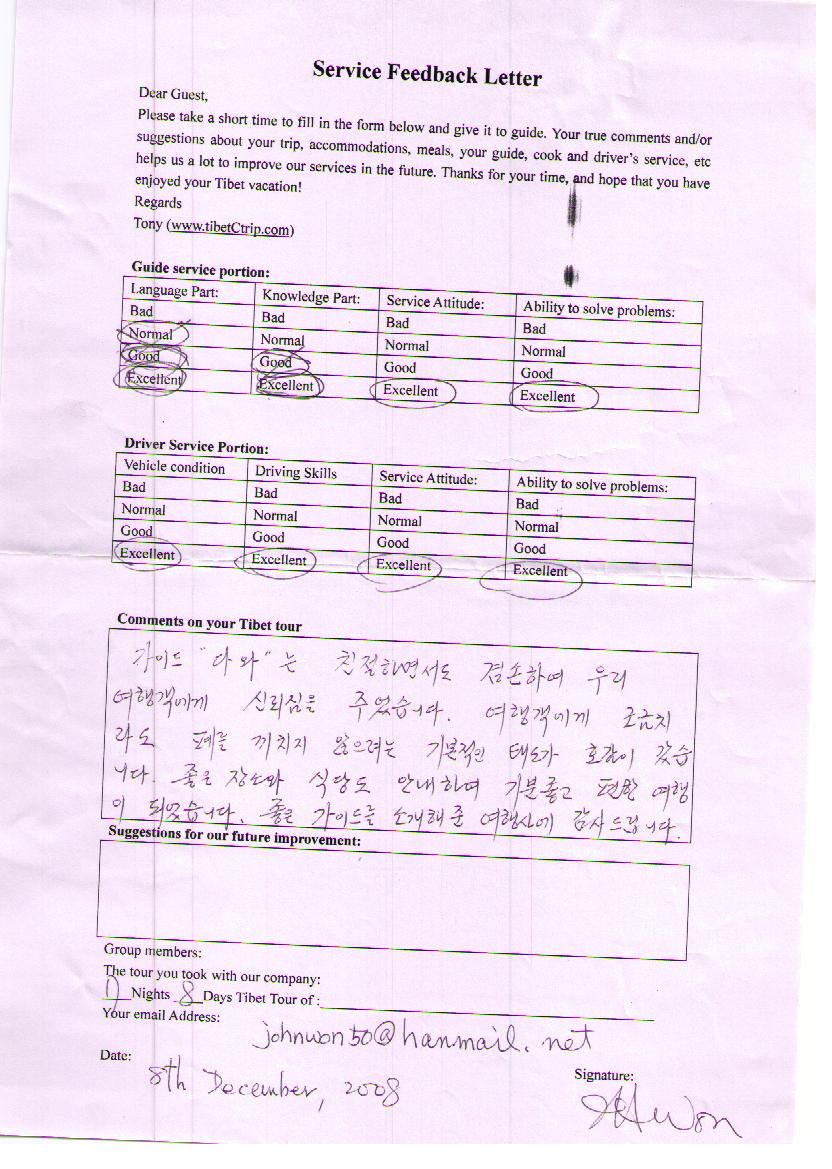 Service Feedback Letter
Dear Guest,
Please take a short time to fill in the form below and give it to guide. Your true comments and/or
suggestions about your trip, accommodations, meals, your guide, cook and driver's service, etc
helps us a lot to improve our services in the future. Thanks for your time, and hope that you have
enjoyed your Tibet vacation!
Regards
Tony (www.tibetCtrip.com)
Guide service portion:
Language Part: Knowledge Part: Service Attitude: Ability to solve problems:
Bad Bad Bad Bad
Normal Normal Normal Normal
Good Good Good Good
Excellent Excellent Excellent Excellent
Driver Service Portion:
Vehicle condition Driving Skills Service Attitude: Ability to solve problems:
Bad Bad Bad Bad
Normal Normal Normal Normal
Good Good Good Good
Excellent Excellent Excellent Excellent
Comments on your Tibet tour
가이드 "다와"는 친절하면서도 겸손하여 우리
여행객에게 신뢰심을 주었습니다. 여행객에게 조금치
라도 폐를 끼치지 않으려는 기본적인 태도가 호감이 갔습
니다. 좋은 장소와 식당도 안내하며 기분좋고 편한 여행
이 되었습니다. 좋은 가이드를 소개해준 여행사에 감사드립니다.
Suggestions for our future improvement:
Group members:
The tour you took with our company:
7 Nights 8 Days Tibet Tour of :
Your email Address:
johnwon50@hanmail.net
Date:
8th December, 2008
Signature:
Won